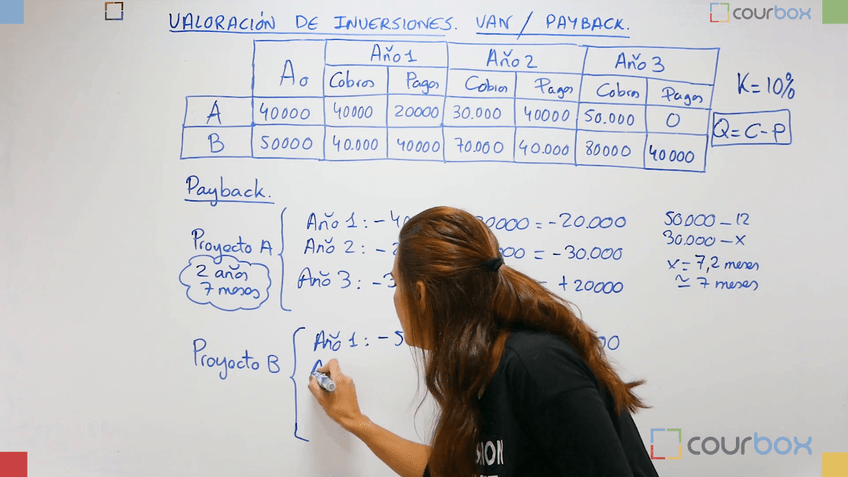 courbox
VALORACIÓN DE INVERSIONES. VAN / PAYBACK.
A₀ Año 1 Año 2 Año 3
Cobros Pagos Cobros Pagos Cobros Pagos
A 40000 40000 20000 30.000 40000 50.000 0
B 50000 40.000 40000 70.000 40.000 80000 40000
K=10%
Q=C-P
Payback.
Proyecto A
2 años
7 meses
Año 1: -40 0000 = -20.000
Año 2: - 000 = -30.000
Año 3: -3 + 20000
50.000 — 12
30.000 — x
x = 7,2 meses
≃ 7 meses
Proyecto B
Año 1: -5 00
courbox